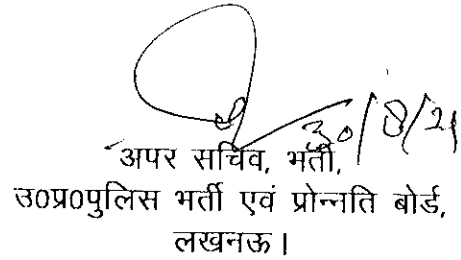 30/8/21
अपर सचिव, भर्ती,
उ0प्र0पुलिस भर्ती एवं प्रोन्नति बोर्ड,
लखनऊ।